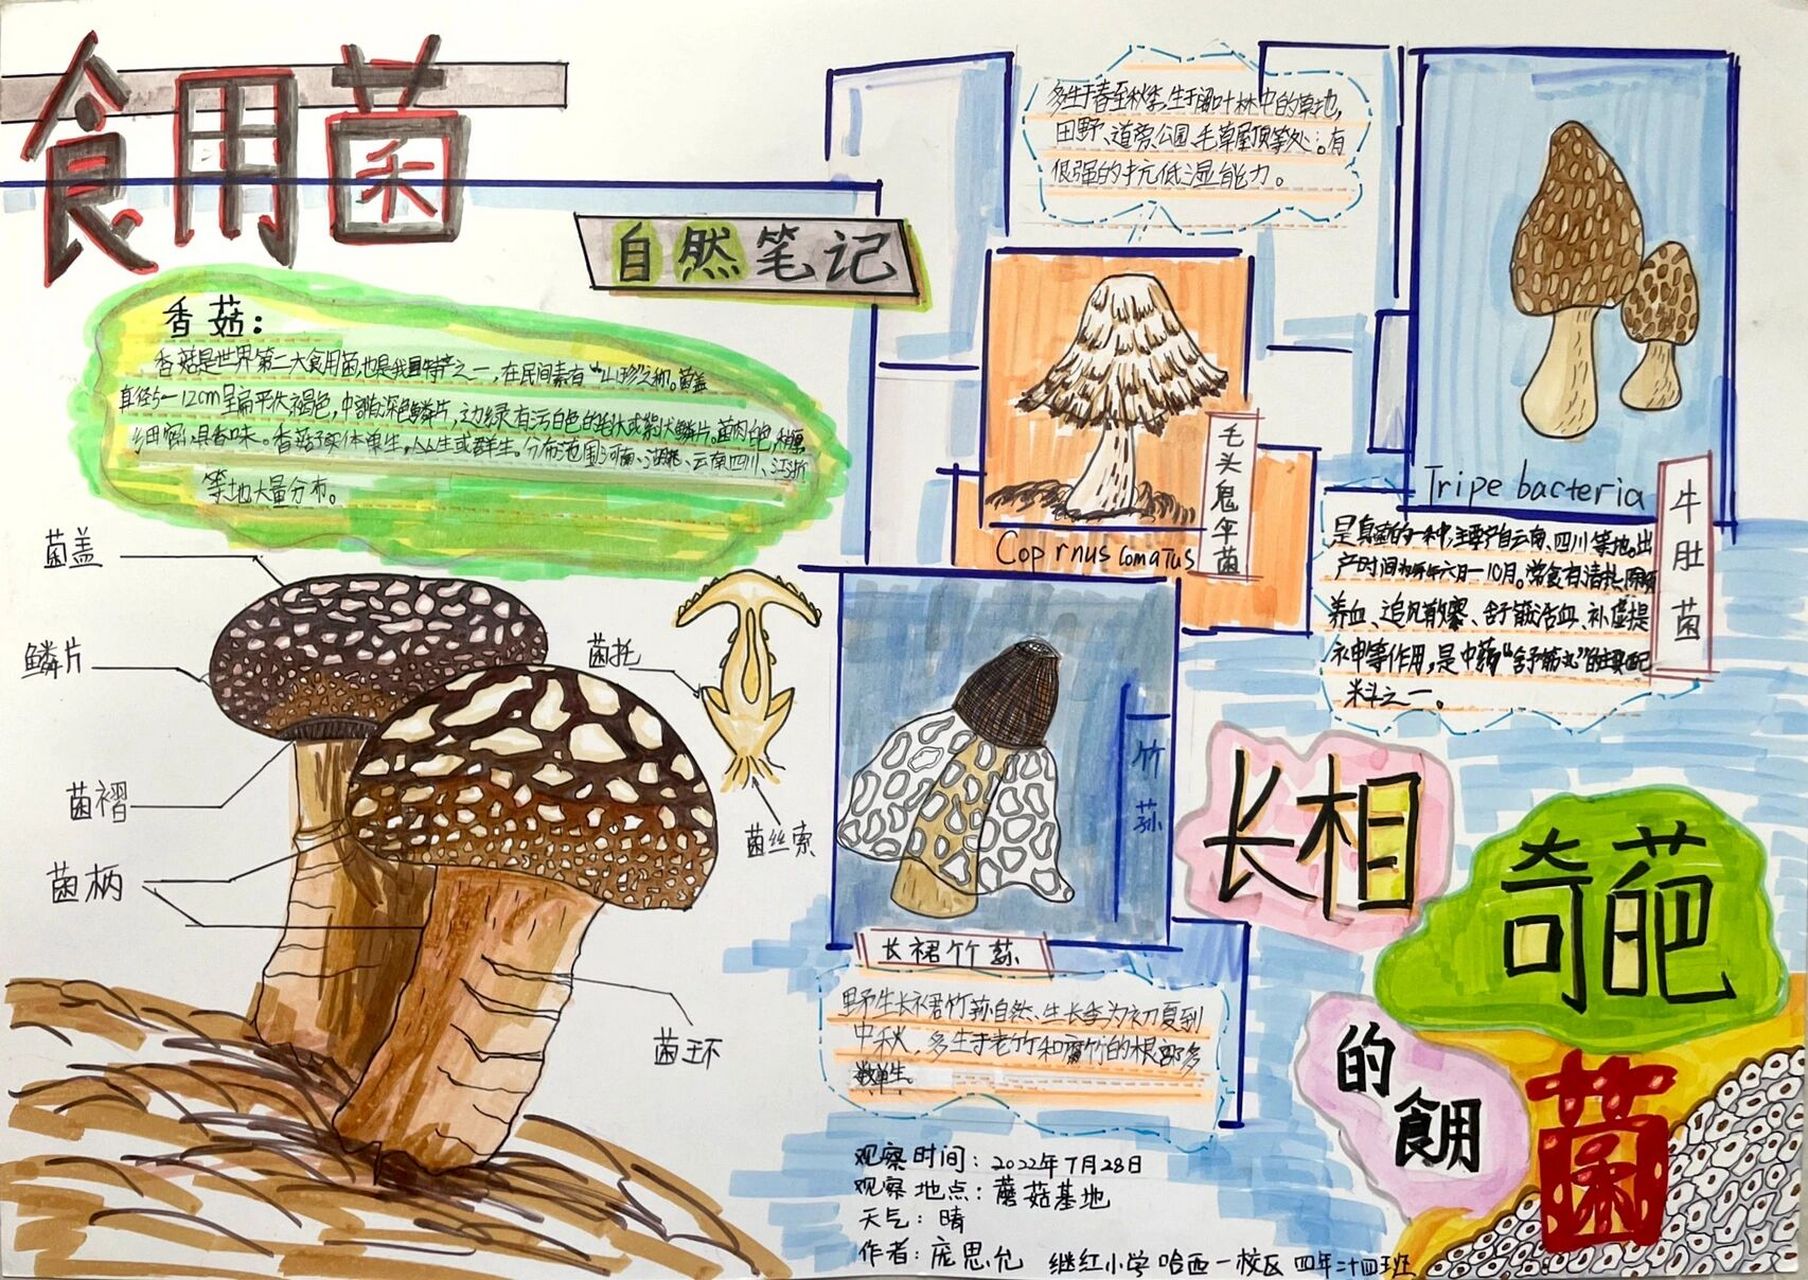 食用菌
自然笔记
香菇：
香菇是世界第二大食用菌,也是我国特产之一,在民间素有"山珍"之称。菌盖
直径5-12cm呈扁平状褐色,中部有深色鳞片,边缘有污白色的毛状或絮状鳞片。菌肉白色,稍厚
细密,具香味。香菇子实体单生,丛生或群生。分布范围河南、云南四川、江浙
等地大量分布。
菌盖
鳞片
菌褶
菌柄
菌托
菌丝索
菌环
多生于春至秋季,生于阔叶林中的草地,
田野、道旁、公园、毛草屋顶等处;。有
很强的抗低湿能力。
Coprnus comatus
毛头鬼伞菌
Tripe bacteria
牛肚菌
是真菌的一种,主要产自云南、四川等地。出
产时间为每年六月一10月。常食有清热除烦
养血、追风散寒、舒筋活血、补虚提
神等作用,是中药"舒筋丸"的主要配
料之一。
竹荪
长裙竹荪
野生长裙竹荪自然、生长季为初夏到
中秋,多生于老竹和腐竹的根部多
数单生。
长相
奇葩
的
食用
菌
观察时间：2022年7月28日
观察地点：蘑菇基地
天气：晴
作者：庞思允 继红小学哈西一校区 四年二十四班